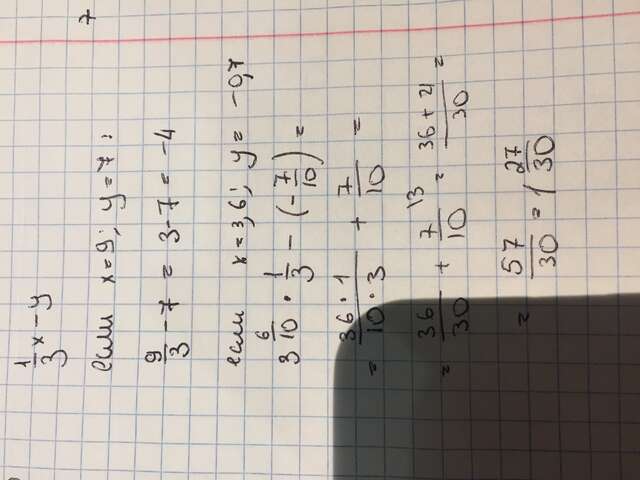 1/3 x - y
7
если x = 9; y = 7 :
9/3 - 7 = 3-7 = -4
если x = 3,6; y = -0,7
3 6/10 · 1/3 - (- 7/10) =
= 36·1/10·3 + 7/10 =
= 36/30 + 7/10 \3 = 36+21/30 =
= 57/30 = 1 27/30